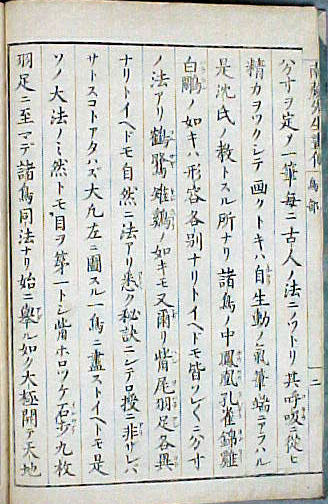 分寸ヲ定ノ一筆毎ニ古人ノ法ニノトリ其呼吸ニ従ヒ
精力ヲツクシテ画クトキハ自生動ノ氣筆端ニアラハル
是沈氏ノ教トスル所ナリ諸鳥ノ中鳳凰孔雀錦雞
白鷴ノ如キハ形容各別ナリトイヘドモ皆ソレ〱ニ分寸
ノ法アリ鶴鷺雉鷄ノ如キモ又爾リ觜尾羽足各異
ナリトイヘドモ自然ニ法アリ悉ク秘訣ニシテ口授ニ非サレバ
サトスコトアタハズ大凡左ニ圖スル一鳥ニ盡ストイヘトモ是
ソノ大法ノミ然トモ目ヲ第一トシ觜ホロツケ石ずり九枚
羽足ニ至マデ諸鳥同法ナリ始ニ擧ル如ク太極開テ天地
鳥部
二